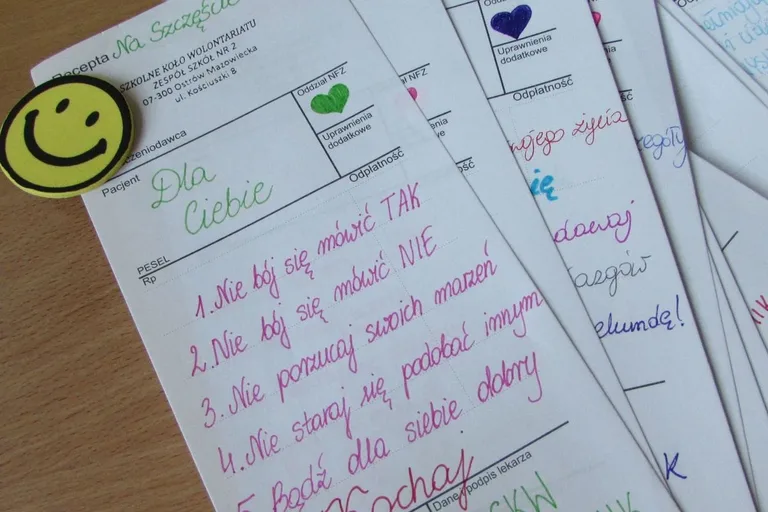 Recepta Na Szczęście
SZKOLNE KOŁO WOLONTARIATU
ZESPÓŁ SZKÓŁ NR 2
07-300 Ostrów Mazowiecka
ul. Kościuszki 8
Oddział NFZ
Uprawnienia
dodatkowe
Pacjent
Dla
Ciebie
Odpłatność
PESEL
Rp
1. Nie bój się mówić TAK
2. Nie bój się mówić NIE
3. Nie porzucaj swoich marzeń
4. Nie staraj się podobać innym
5. Bądź dla siebie dobry
Kochaj
Dane i podpis lekarza
SKW
NFZ
Oddział NFZ
Uprawnienia
dodatkowe
Odpłatność
życia
się
elumdę!
K